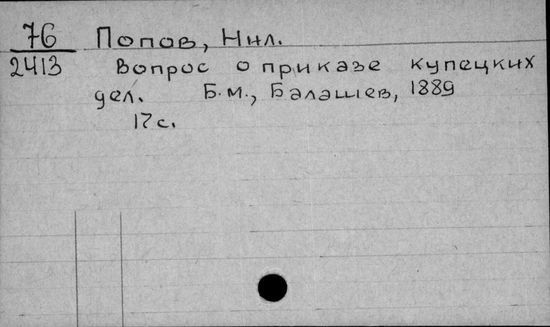 76 Попов, Нил.
2413 Вопрос о приказе купецких
дел. Б.м., Балашев, 1889
17 с.